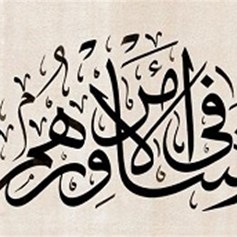 شاورهم في الأمر